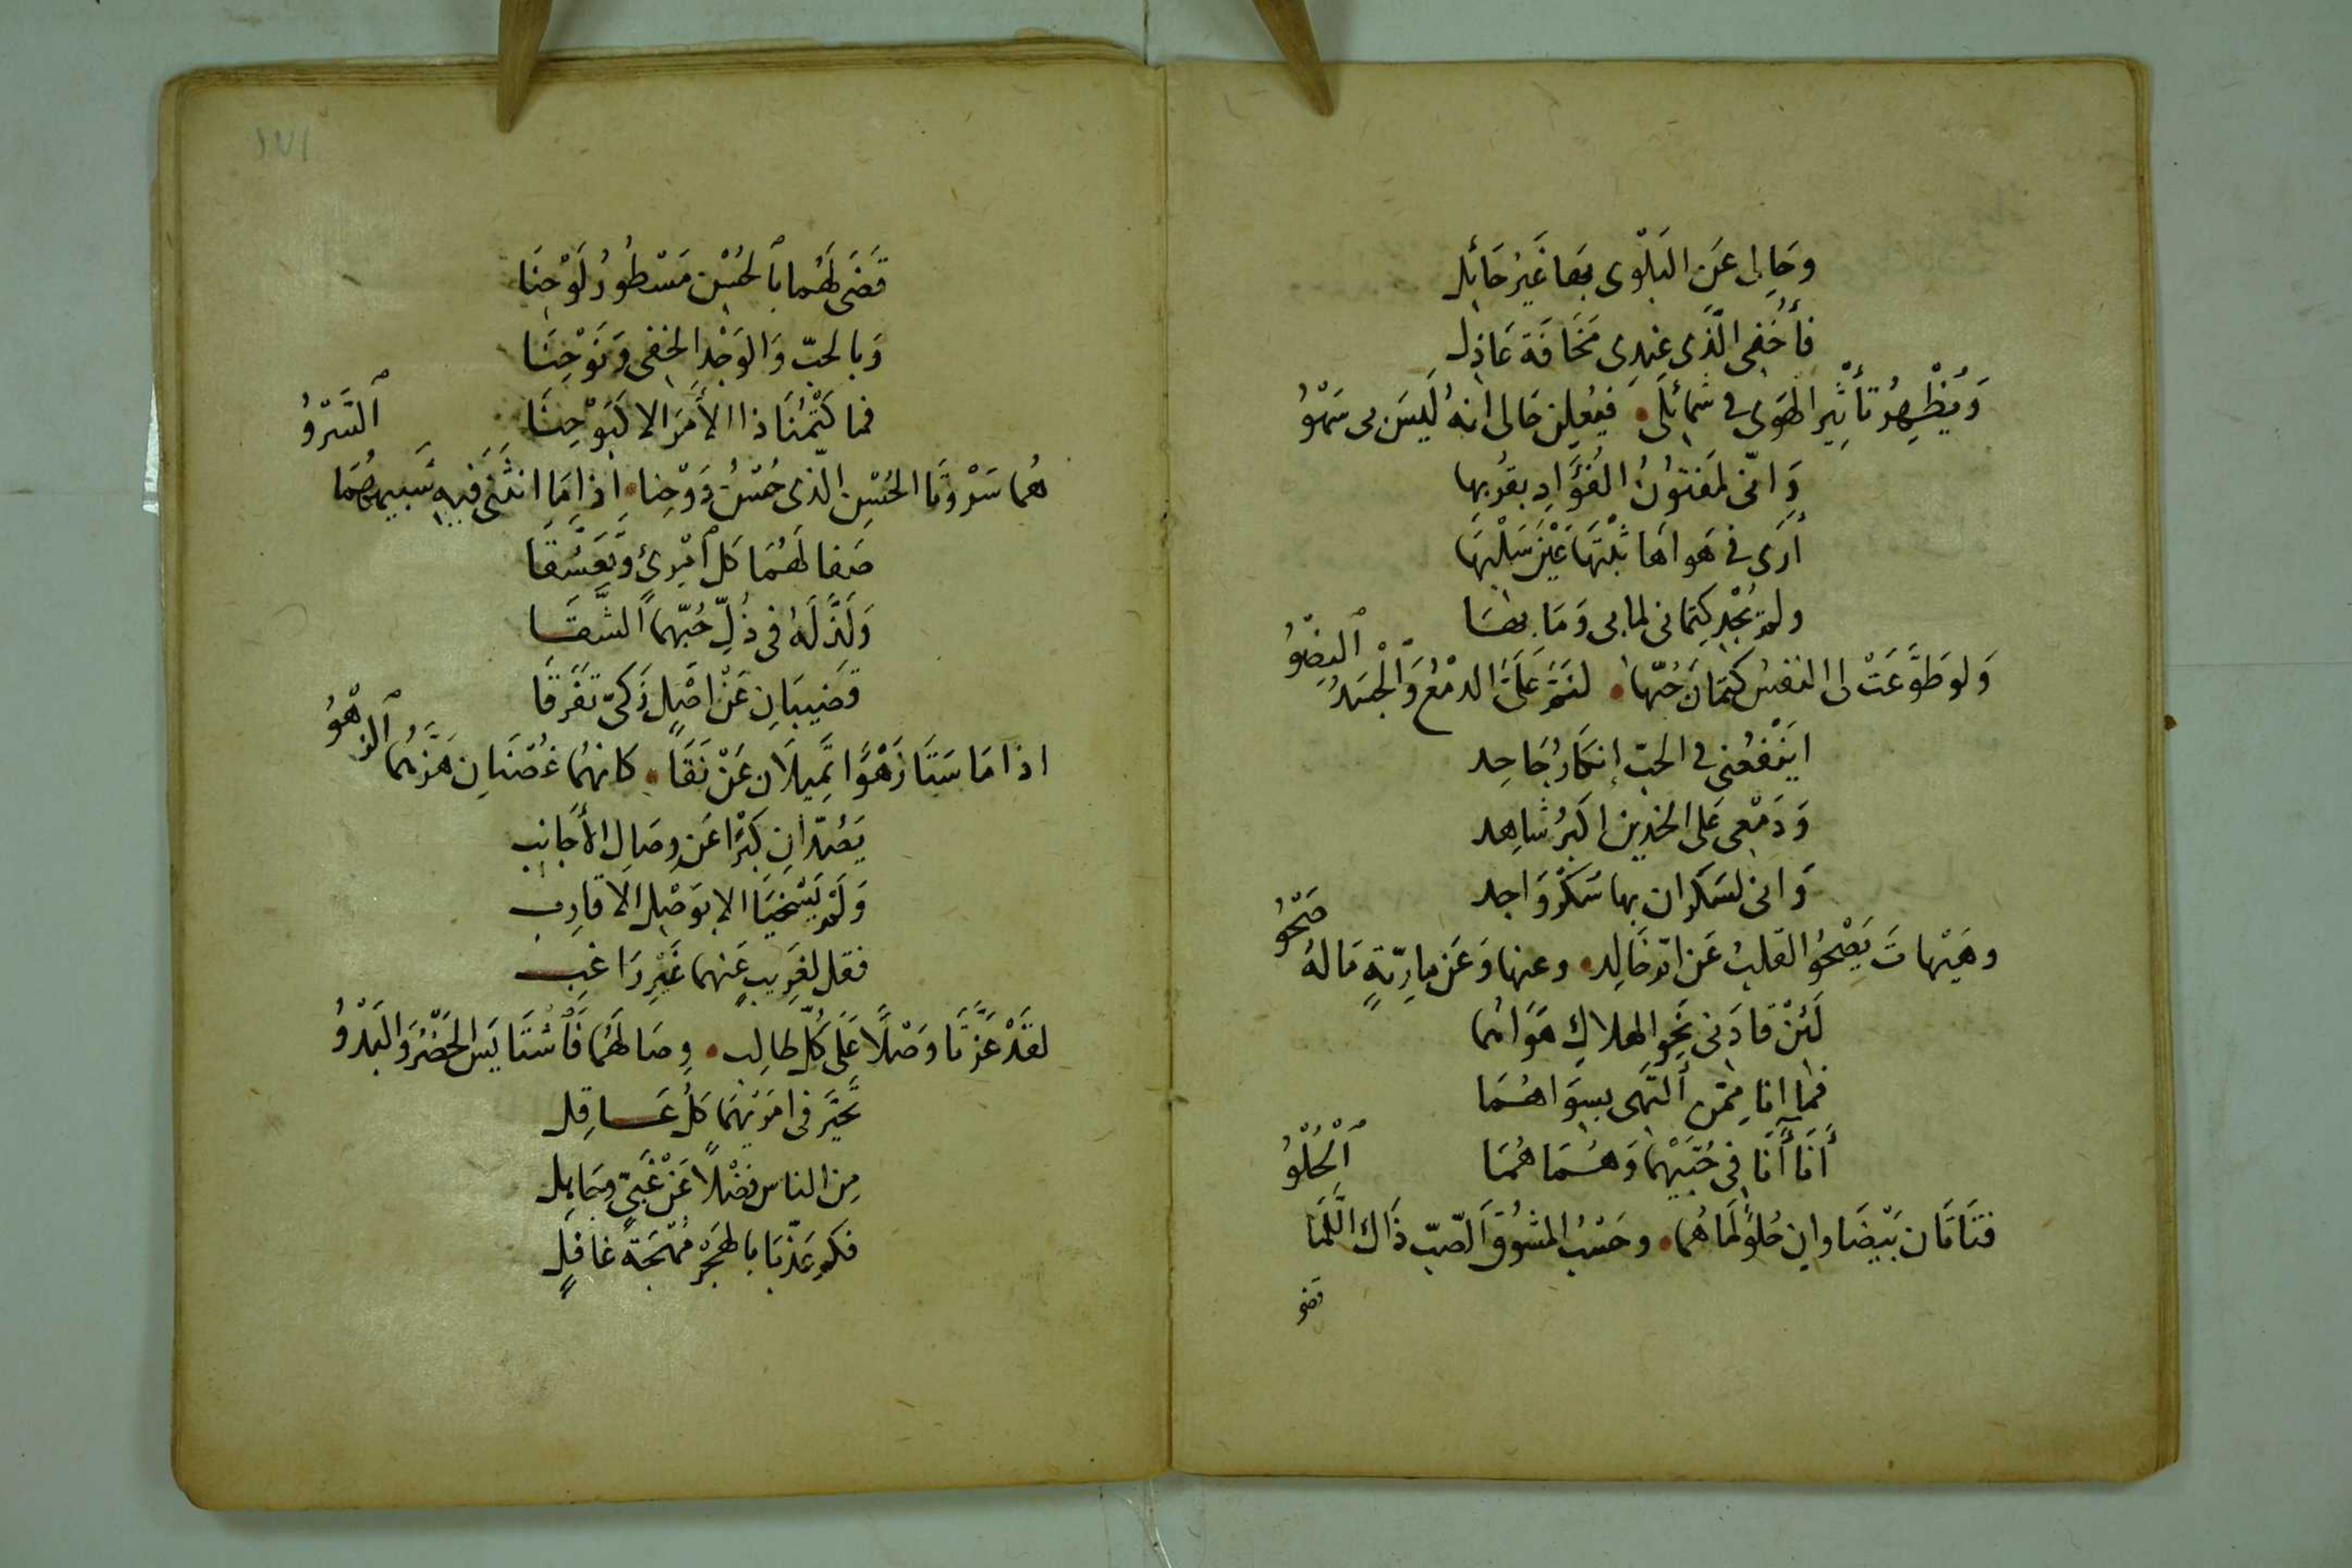 وَحَالِى عَنِ البَلْوى بهَا غَيْرُ حَائِلِ
فَأُخْفِى الَّذِى عِنْدِى مَخَافَةَ عَاذِلِ
وَيُظْهِرُ تَأْثِيرُ الهَوَى فى شمَائِلَى • فَيُعْلِنُ حَالى انهُ لَيسَ بى سَهْوُ
وَانّى لمَفتُونُ الفُؤَادِ بقُربِها
أَرَى فى هَواهَا ثَلْبَهَا عَيْنَ سَلْبِهَا
ولمْ يُجْدِ كِتمانى لما بى وَمَا بِهَا
وَلَو طَوَّعَتْ لى النفسُ كِتمَانَ حُبّها • لنَمَّ عَلَىَّ الدمْعُ وَالْجَسَدُ النِضْوُ
ايَنْفَعُنى فى الحبّ إنكَارُ جَاحِد
وَدَمْعِى عَلى الخدين اكبَرُ شاهِد
وَانى لسَكران بها سَكْرَ وَاجد
وهَيْهاتَ يَصْحُو القَلبُ عَن اتو خَالِد • وعنها وَعَن مارِيّةٍ مَا لهُ صَحْوُ
لَئِنْ قادَنى نَحْوَ الهلاكِ هَوَاهُما
فما انا مِمّن التَهَى بسِوَاهُمَا
أَنَا أَنَا فى حُبَّيْهِمَا وَهُمَا هُمَا
فتَاتَان بَيْضَاوانِ حُلوٌ لَمَاهُما • وحَسْبُ المَشُوقِ الصّبِّ ذَاكَ اللَّمَا اَلْحُلْوُ
قضى
قَضَى لَهُما بالحُسْنِ مَسْطُورُ لَوْحِنَا
وَبالحبّ وَالوَجْدِ الخفى وَنَوْحِنَا
فما كَتْمُنَا ذا الأَمَرَ الا كَبَوْحِنَا
هُما سَرْوَتَا الحُسْنِ الّذى حُسْنُ دَوْحِنا • اذا مَا انثَنَى فيهِ شَبيهُهُمَا اَلسَّرْوُ
صَفا لَهُمَا كل امْرِئٍ وَتَعَشَّقَا
وَلَذَّ لَهُ فى ذُلِّ حُبّهِما الشَّقَا
قضِيبَانِ عَنْ اصْلٍ زَكىّ تفَرّقَا
اذا مَا سَتَا زَهْوًا تمِيلَان عَنْ نَقَا • كانهُما غُصْنَانِ هَزَّهُمُا الزهْوُ
يَصُدّانِ كِبْرًا عَن وِصَالِ الأَجَانِب
وَلَمْ يَسْخَيَا الا بوَصْلِ الاقارِب
فقل لغَرِيبٍ عَنهما غَيْرِ رَاغِب
لقَدْ عَزّتَا وَصْلًا عَلَى كُلّ طالِب • وِصَالَهُمَا فَاسْتَايَسَ الحَضْرُ وَالبَدْوُ
تحَيَّر فى امرَيْهِمَا كلُّ عَاقِل
مِن الناس فضْلًا عَنْ غَبىٍّ وَجَاهِل
فكم عَذّبَا بالهَجْرِ مُهْجَةَ غافِلٍ